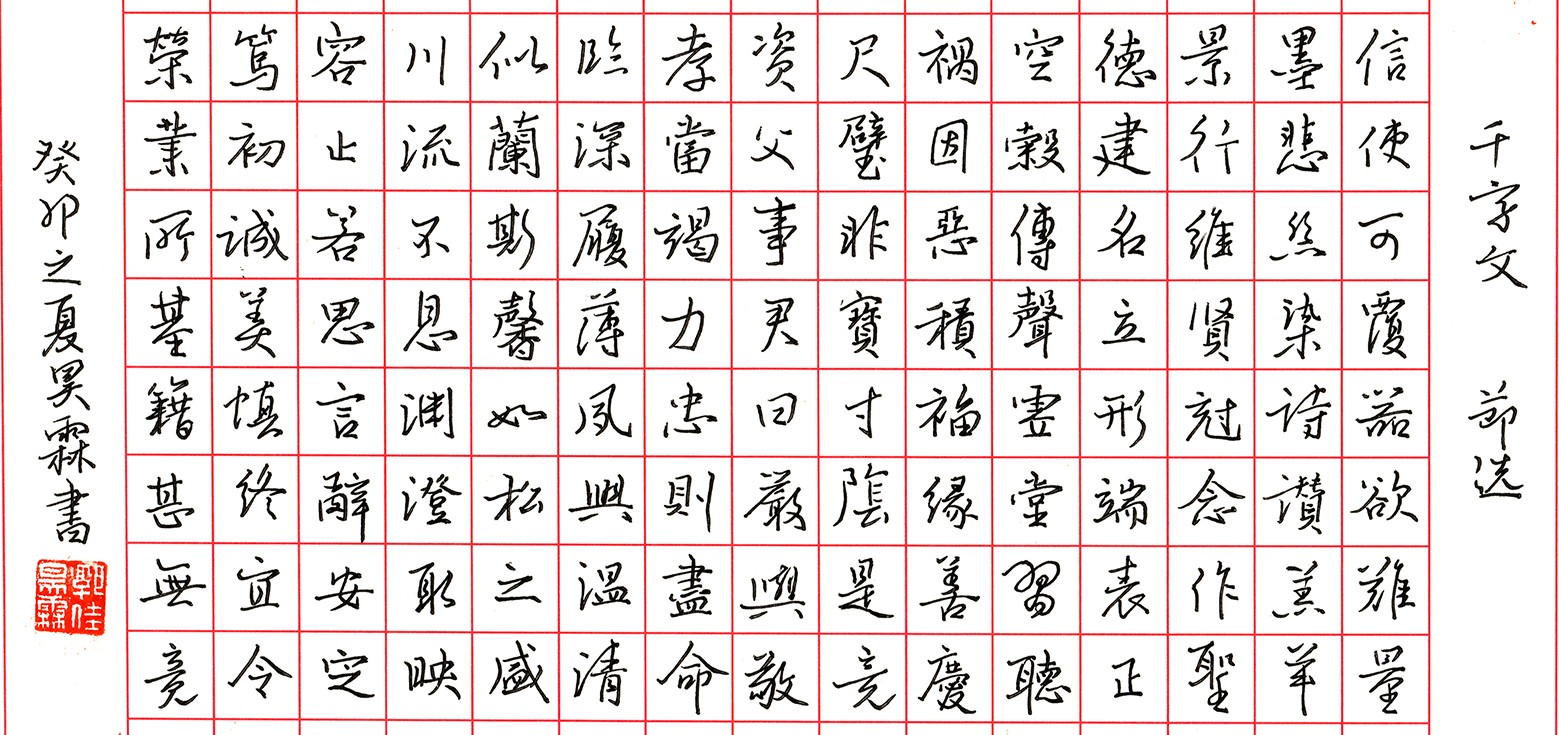 千字文 節选
信使可覆器欲難量
墨悲絲染詩讚羔羊
景行維賢尅念作聖
德建名立形端表正
空穀傳聲虛堂習聽
禍因惡積福緣善慶
尺璧非寶寸陰是竞
資父事君曰嚴與敬
孝當竭力忠則盡命
臨深履薄夙興溫清
似蘭斯馨如松之盛
川流不息淵澄取映
容止若思言辭安定
篤初誠美慎終宜令
榮業所基籍甚無竟
癸卯之夏昊霖書
郭佳昊霖